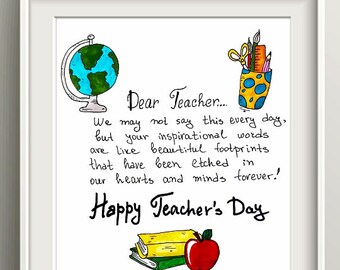 Dear Teacher...
We may not say this every day,
but your inspirational words
are like beautiful footprints
that have been etched in
our hearts and minds forever!
Happy Teacher's Day